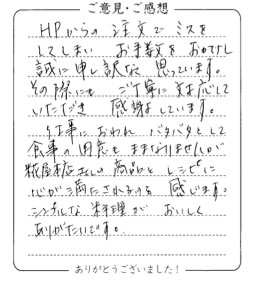 ご意見・ご感想
HPからの 注文で ミスを
してしまい お手数を おかけし
誠に申し訳なく 思っています。
その際にも ご丁寧に 対応して
いただき 感謝しています。
仕事に おわれ バタバタとして
食事の用意も ままなりませんが
糀屋本店さんの商品と レシピに
心が満たされるのを 感じます。
シンプルな 料理が おいしく
ありがたいです。
ありがとうございました!